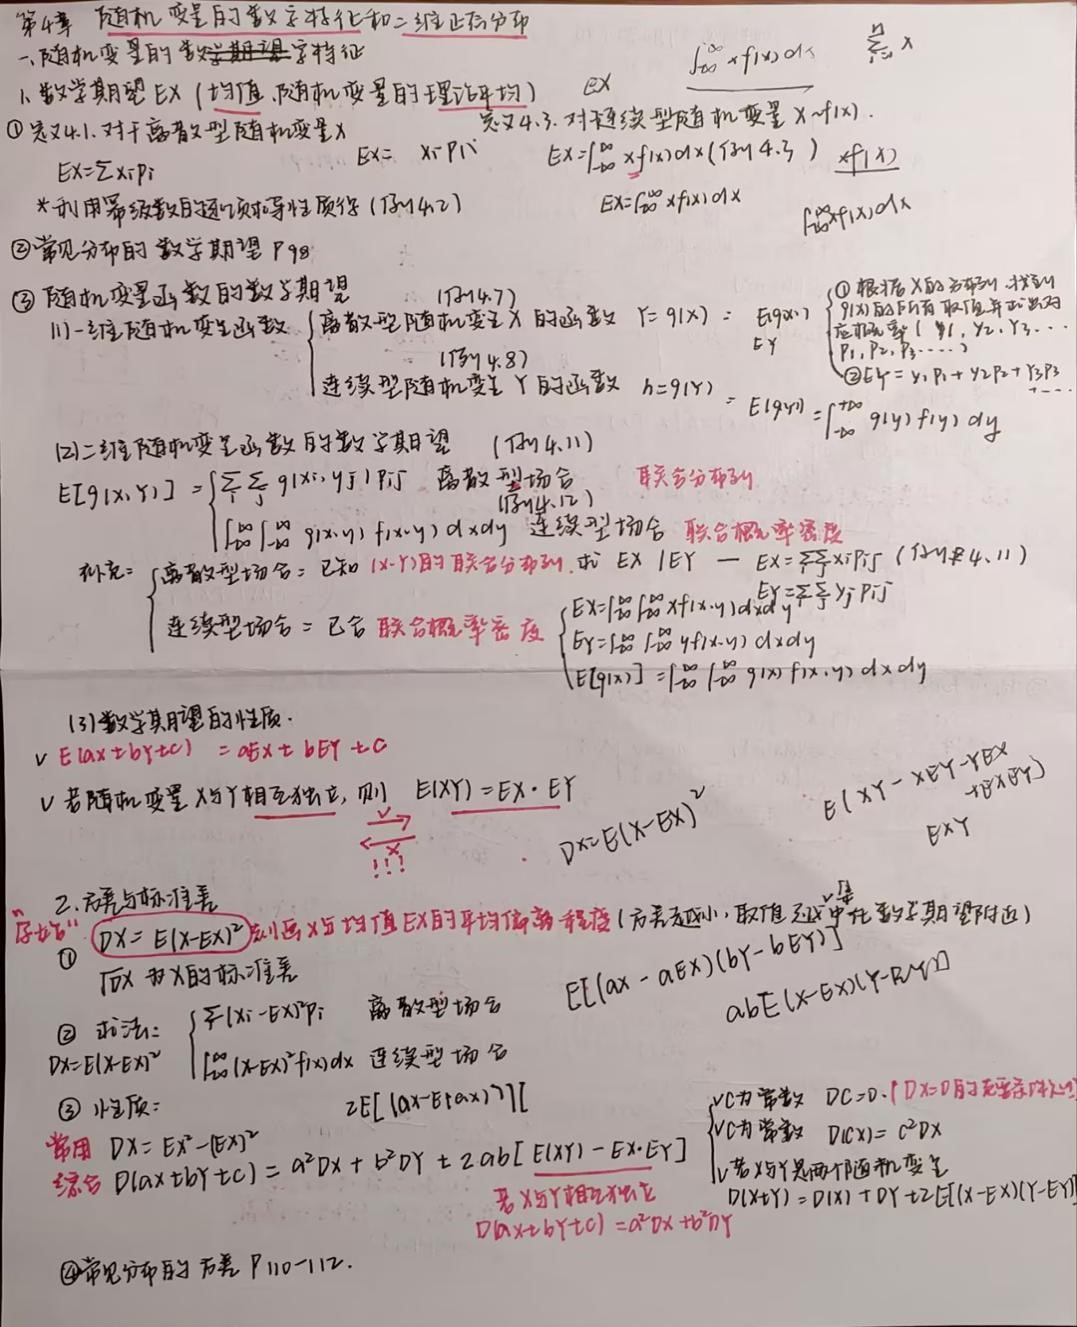 第4章 随机变量的数字特征和二维正态分布
一、随机变量的数字特征
∫_{-∞}^{∞} xf(x)dx
∑_{i=1}^{n} x
1、数学期望EX(均值,随机变量的理论平均)
EX
①定义4.1.对于离散型随机变量X
定义4.3.对连续型随机变量X~f(x).
EX=∑xipi
EX= xipi
EX=∫_{-∞}^{∞} xf(x)dx(例4.3)
xf(x)
*利用幂级数的逐项求导性质得(例4.2)
EX=∫_{-∞}^{∞} xf(x)dx
∫_{-∞}^{∞} xf(x)dx
②常见分布的数学期望P98
③随机变量函数的数学期望
(1)一维随机变量函数
(例4.7)
离散型随机变量X的函数 Y=g(X) = E(g(x))
EY
①根据X的分布列,找到
g(x)的所有取值,并求出对
应概率(y1,y2,y3...
P1,P2,P3.....)
②EY=y1P1+y2P2+y3P3
+....
(例4.8)
连续型随机变量Y的函数 h=g(Y) = E(g(y))=∫_{-∞}^{+∞} g(y)f(y)dy
(2)二维随机变量函数的数学期望 (例4.11)
E[g(X,Y)]= ∑i∑j g(xi,yj)Pij 离散型场合 联合分布列
(例4.12)
∫_{-∞}^{∞}∫_{-∞}^{∞} g(x,y)f(x,y)dxdy 连续型场合 联合概率密度
补充:
离散型场合=已知(X,Y)的联合分布列.求EX/EY — EX=∑∑xiPij(例4.11)
EY=∑∑yjPij
连续型场合=已合联合概率密度
EX=∫_{-∞}^{∞}∫_{-∞}^{∞} xf(x,y)dxdy
EY=∫_{-∞}^{∞}∫_{-∞}^{∞} yf(x,y)dxdy
E[g(x)]=∫_{-∞}^{∞}∫_{-∞}^{∞} g(x)f(x,y)dxdy
(3)数学期望的性质.
√ E(ax±bY±c) =aEX±bEY±c
√ 若随机变量X与Y相互独立,则 E(XY)=EX·EY
√
×
!!!
DX=E(X-EX)²
E(XY-XEY-YEX
+EXEY)
EXY
2.方差与标准差
① DX=E(X-EX)² 刻画X与均值EX的平均偏离程度(方差越小,取值越集中在数学期望附近)
√DX为X的标准差
E[(ax-aEX)(bY-bEY)]
abE(X-EX)(Y-EY)]
②求法:
DX=E(X-EX)²
∑(xi-EX)²pi 离散型场合
∫_{-∞}^{∞}(x-EX)²f(x)dx 连续型场合
③性质:
2E[(ax-E(ax))][
常用 DX=EX²-(EX)²
综合 D(ax±bY±c)=a²DX+b²DY±2ab[E(XY)-EX·EY]
若X与Y相互独立
D(ax±bY±c)=a²DX+b²DY
√C为常数 DC=0.
√C为常数 D(CX)=C²DX
√若X与Y是两个随机变量
D(X±Y)=D(X)+DY±2E[(X-EX)(Y-EY)]
④常见分布的方差P110-112.